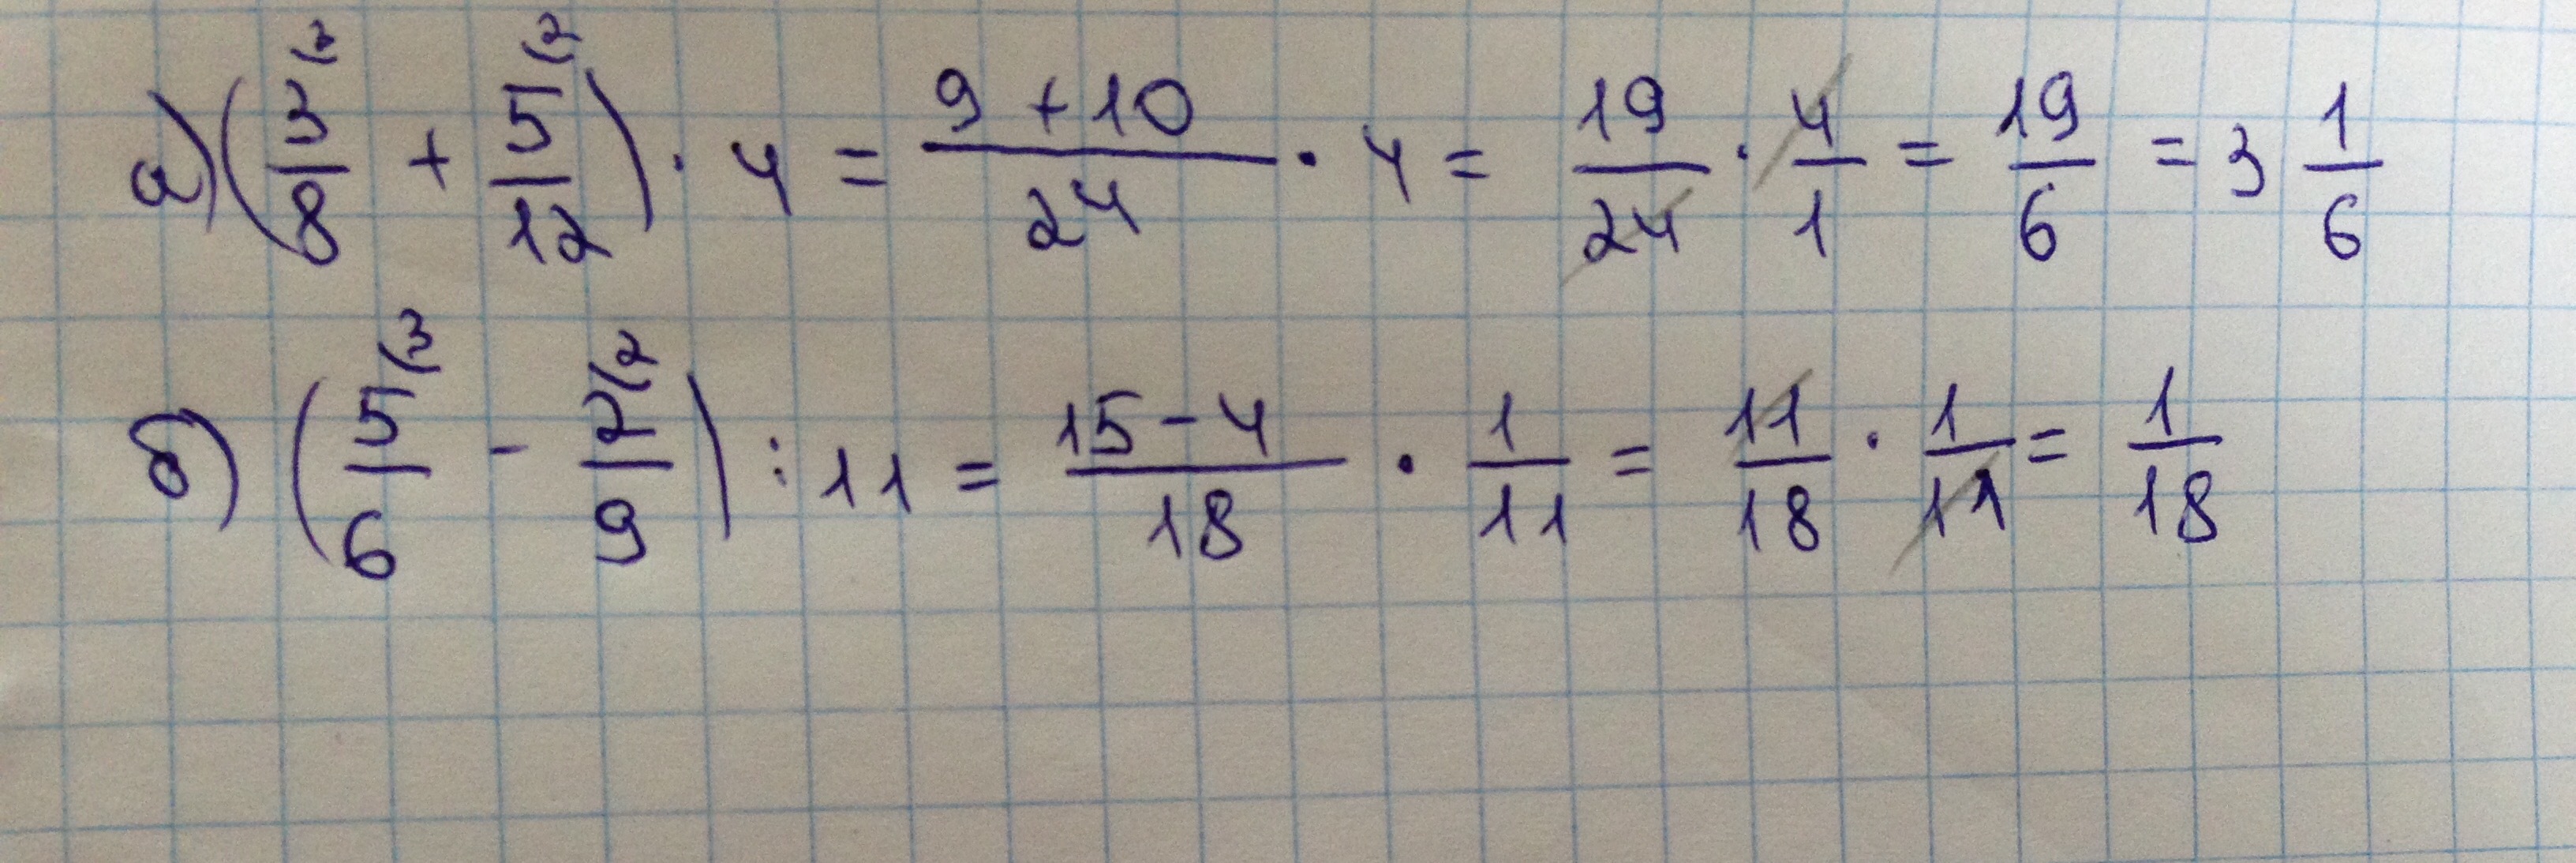 а) (3/8 + 5/12) · 4 = (9 + 10)/24 · 4 = 19/24 · 4/1 = 19/6 = 3 1/6
б) (5/6 - 2/9) : 11 = (15 - 4)/18 · 1/11 = 11/18 · 1/11 = 1/18